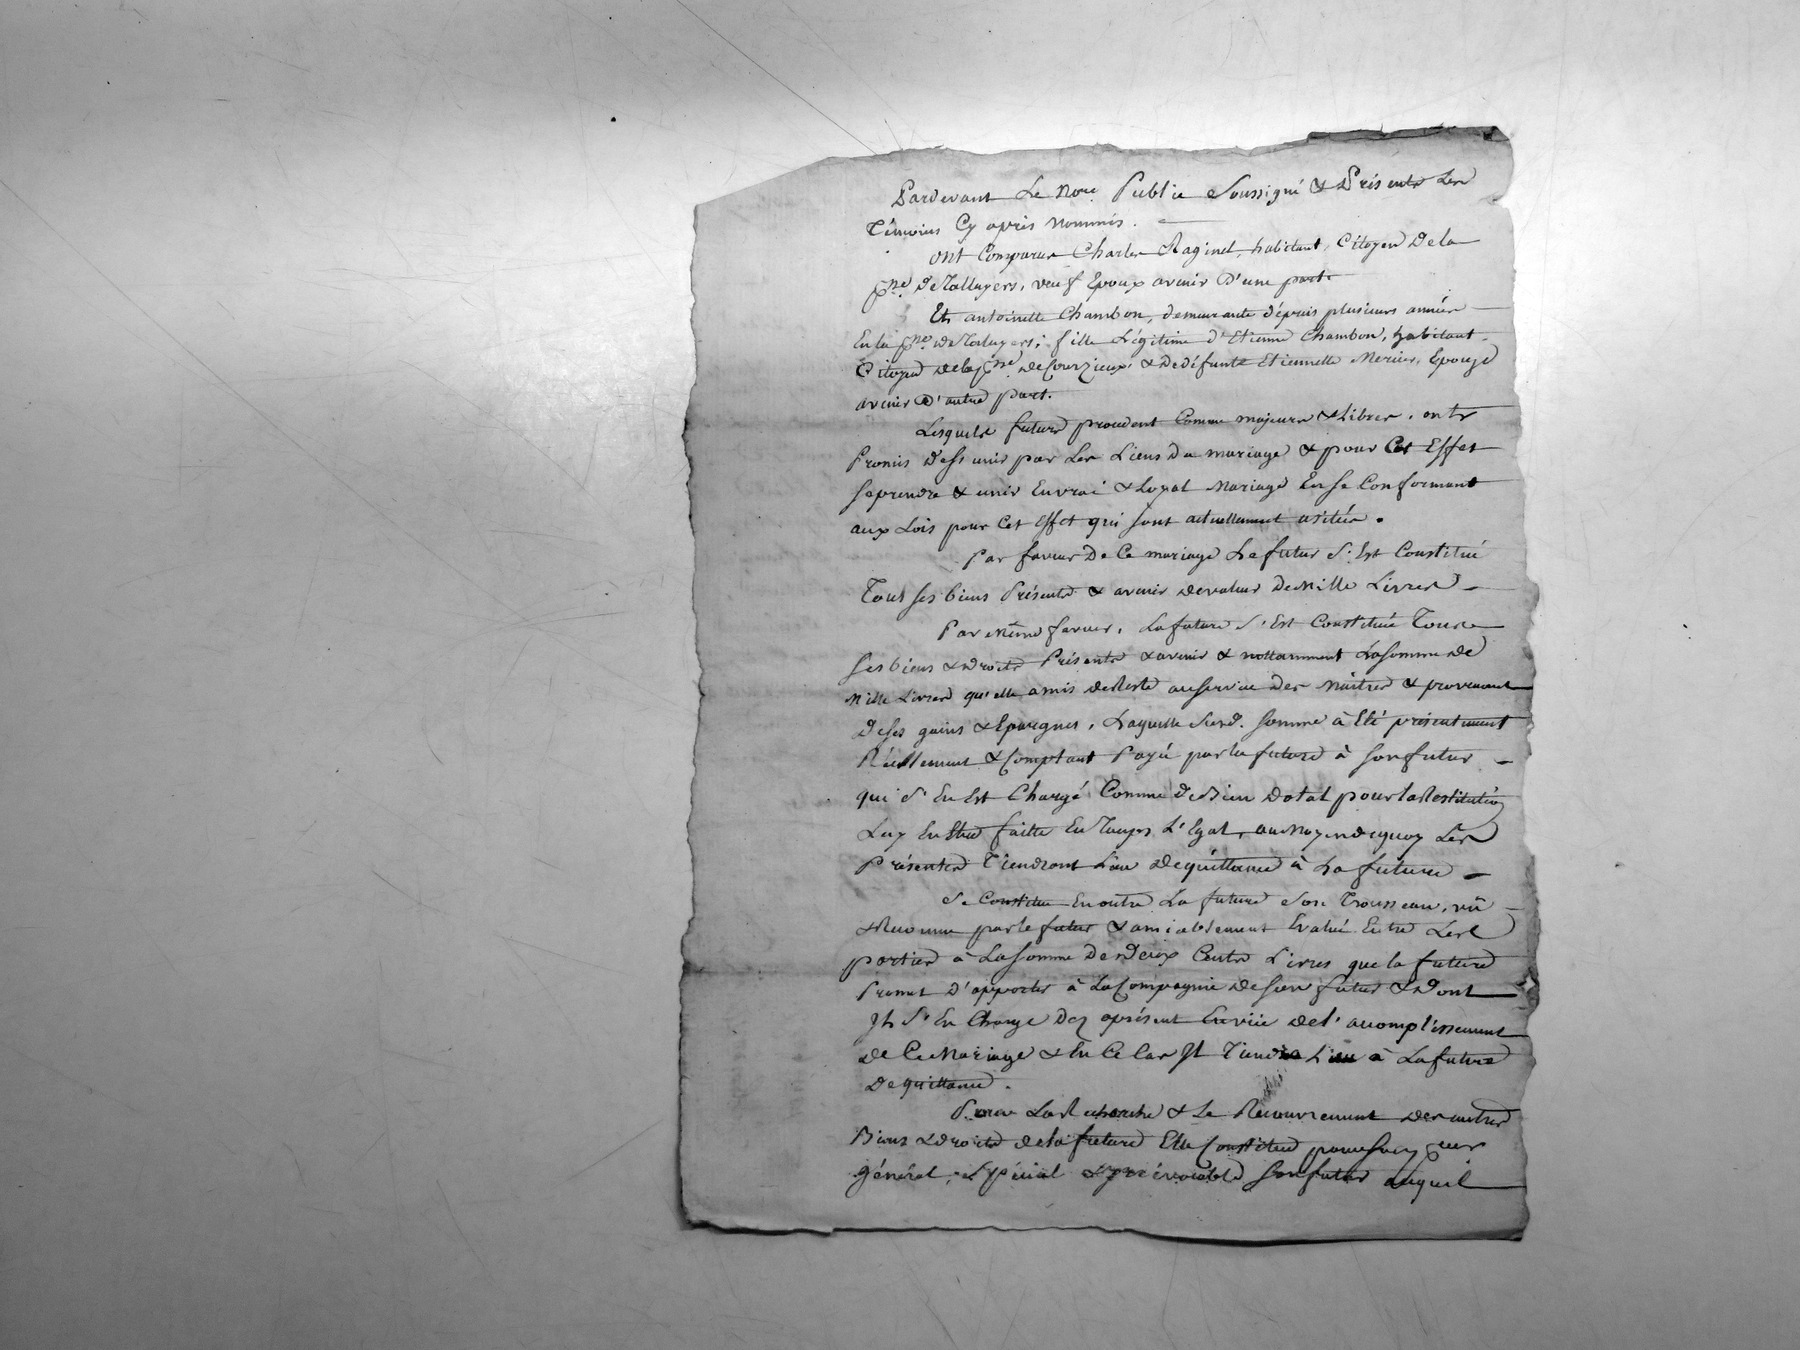 Pardevant Le No.re Public Soussigné & Présents Les
Témoins Cy après nommés.
Ont Comparus Charles Raginel, habitant, Citoyen De la
p.sse De Talluyers, veuf Epoux avenir D'une part.
Et antoinette Chambon, demeurante dépuis plusieurs années
En la p.sse de Taluyers, fille Légitime d'Etienne Chambon, habitant
Citoyen de la p.sse de Courzieux, & De défunte Etiennette Mercier, Epouze
avenir D'autre part.
Lesquels futurs procédent Comme majeurs & Libres, onts
Promis de s'unir par Les Liens Du mariage & pour Cet Effet
Se prendre & unir En vrai & Loyal Mariage En Se Conformant
aux Lois pour Cet Effet qui sont actuellement usitées.
Par faveur De Ce mariage Le futur S'Est Constitué
Tous Ses biens Présents & avenir de valeur De Mille Livres
Par même faveur, La future S'Est Constituée Tous
Ses biens & Droits Présents & avenir & nottamment La Somme De
Mille Livres qu'elle a mis de Reste au Service Des Maîtres & provenant
De Ses gains & Epargnes, Laquelle Susd. Somme à Eté présentement
Réellement & Comptant Payée par la future à Son futur
qui S'En Est Chargé Comme De Bien Dotal pour la Restitution
Luy En Etre faitte En Temps L'Egal, au Moyen de quoy Les
Présentes Tiendront Lieu De quittance à La future
Se Constitue En outre La future Son Trousseau, vû
& Reconnu par le futur & amiablement Evalué Entre Les
parties à La Somme De Deux Cents Livres que la future
Promet D'apporter à La Compagnie de Son futur & Dont
Il S'En Charge Dez aprésent En vüe de l'accomplissement
de Ce Mariage & En Ce Cas Il Tiendra Lieu à La future
De quittance.
Pour La Recherche & Le Recouvrement Des autres
Biens & droits de la future Elle Constitue pour Son p.eur
général, & Spécial & Irrévocable Son futur auquel